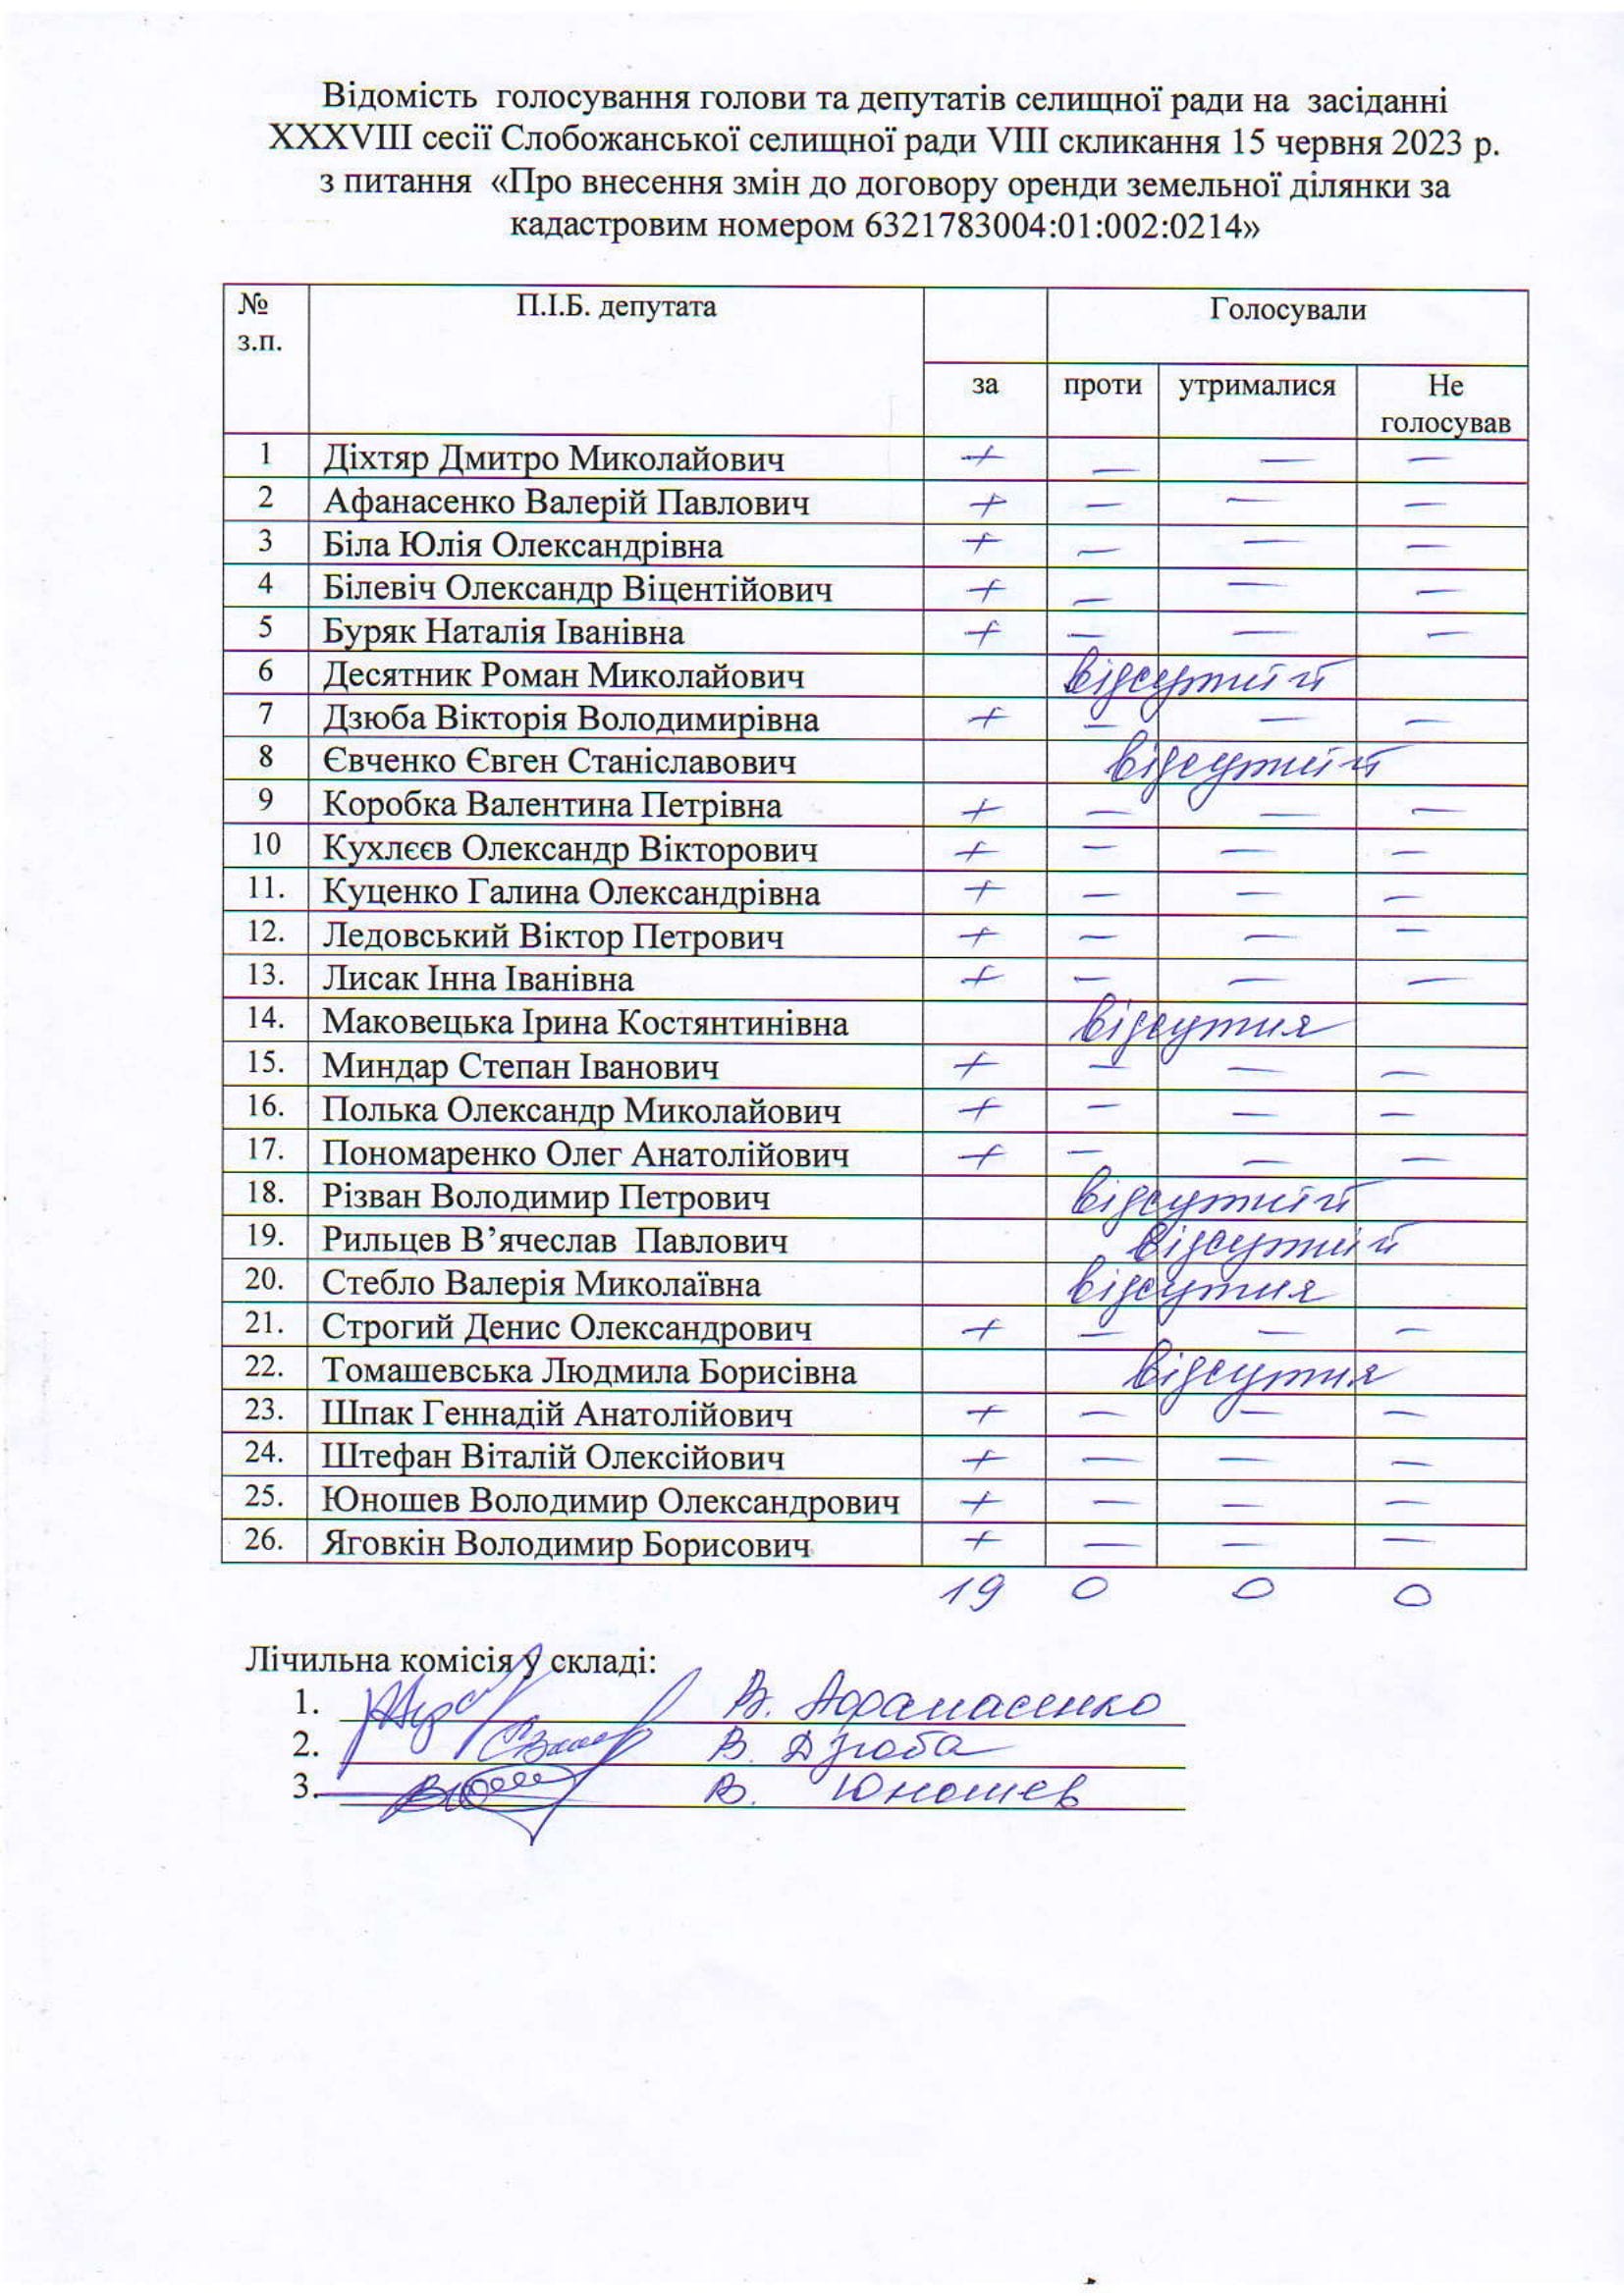 Відомість голосування голови та депутатів селищної ради на засіданні
XXXVIII сесії Слобожанської селищної ради VIII скликання 15 червня 2023 р.
з питання «Про внесення змін до договору оренди земельної ділянки за
кадастровим номером 6321783004:01:002:0214»
№ з.п. П.І.Б. депутата Голосували
за проти утрималися Не голосував
1 Діхтяр Дмитро Миколайович + — — —
2 Афанасенко Валерій Павлович + — — —
3 Біла Юлія Олександрівна + — — —
4 Білевіч Олександр Віцентійович + — — —
5 Буряк Наталія Іванівна + — — —
6 Десятник Роман Миколайович відсутній
7 Дзюба Вікторія Володимирівна + — — —
8 Євченко Євген Станіславович відсутній
9 Коробка Валентина Петрівна + — — —
10 Кухлєєв Олександр Вікторович + — — —
11. Куценко Галина Олександрівна + — — —
12. Ледовський Віктор Петрович + — — —
13. Лисак Інна Іванівна + — — —
14. Маковецька Ірина Костянтинівна відсутня
15. Миндар Степан Іванович + — — —
16. Полька Олександр Миколайович + — — —
17. Пономаренко Олег Анатолійович + — — —
18. Різван Володимир Петрович відсутній
19. Рильцев В’ячеслав Павлович відсутній
20. Стебло Валерія Миколаївна відсутня
21. Строгий Денис Олександрович + — — —
22. Томашевська Людмила Борисівна відсутня
23. Шпак Геннадій Анатолійович + — — —
24. Штефан Віталій Олексійович + — — —
25. Юношев Володимир Олександрович + — — —
26. Яговкін Володимир Борисович + — — —
19 0 0 0
Лічильна комісія у складі:
1. В. Афанасенко
2. В. Дзюба
3. В. Юношев